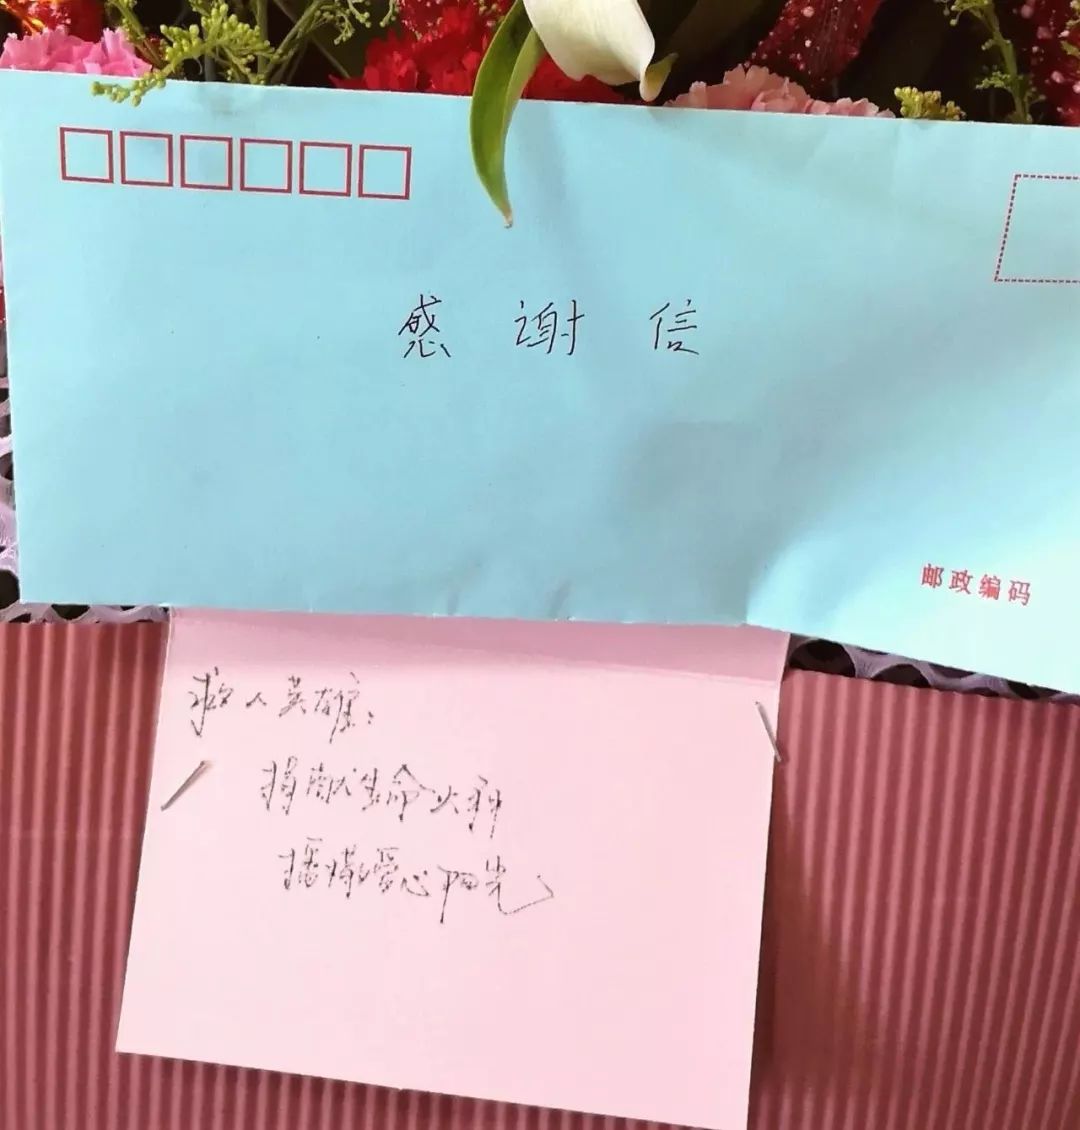 感谢信
邮政编码
救人英雄:
捐献生命火种
播撒爱心阳光